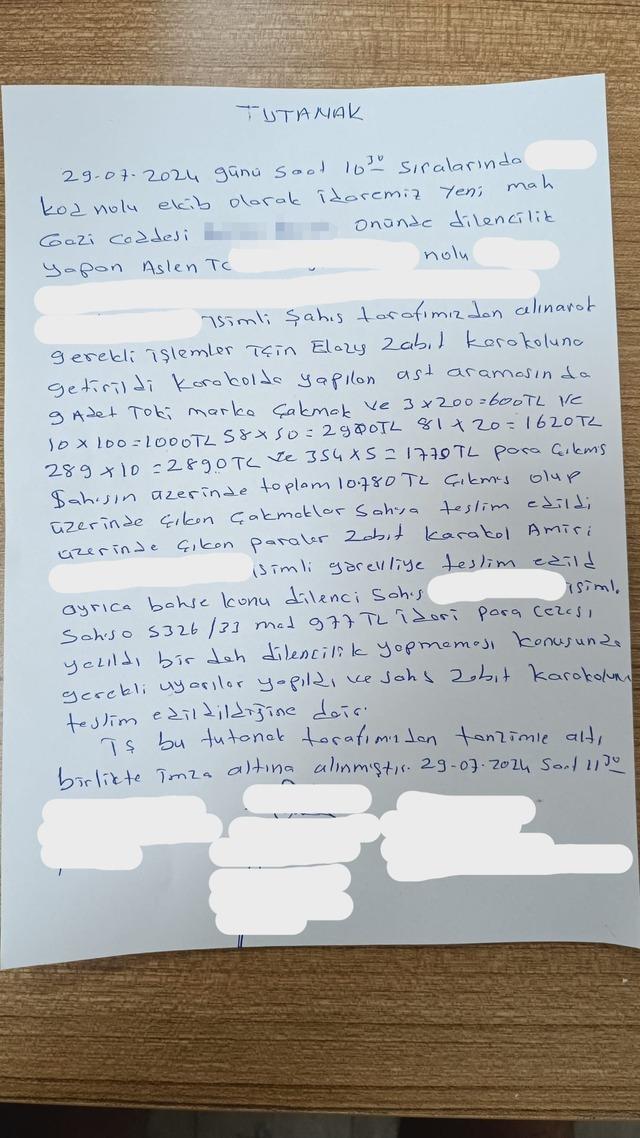 TUTANAK
29-07-2024 günü saat 10³⁰ sıralarında
kod nolu ekib olarak idaremiz Yeni mah
Gazi Caddesi önünde dilencilik
yapan Aslen TC nolu
isimli şahıs tarafımızdan alınarak
gerekli işlemler için Elazığ Zabıt Karakoluna
getirildi Karakolda yapılan üst aramasında
9 Adet Toki marka Çakmak ve 3 x 200 = 600 TL ve
10 x 100 = 1000 TL 58 x 50 = 2900 TL 81 x 20 = 1620 TL
289 x 10 = 2890 TL ve 354 x 5 = 1770 TL para çıkmış
Şahısın üzerinde toplam 10.780 TL Çıkmış olup
üzerinde çıkan Çakmaklar Şahısa teslim edildi
üzerinde çıkan paralar Zabıt Karakol Amiri
isimli görevliye teslim edild
ayrıca bahse konu dilenci Şahıs isiml.
Şahısa 5326/33 mad 977 TL idari para cezası
yazıldı bir dah dilencilik yapmaması konusunda
gerekli uyarılar yapıldı ve şahıs Zabıt Karakoluna
teslim edildildiğine dair.
İş bu tutanak tarafımızdan tanzimle altı
birlikte imza altına alınmıştır. 29-07-2024 Saat 11³⁰